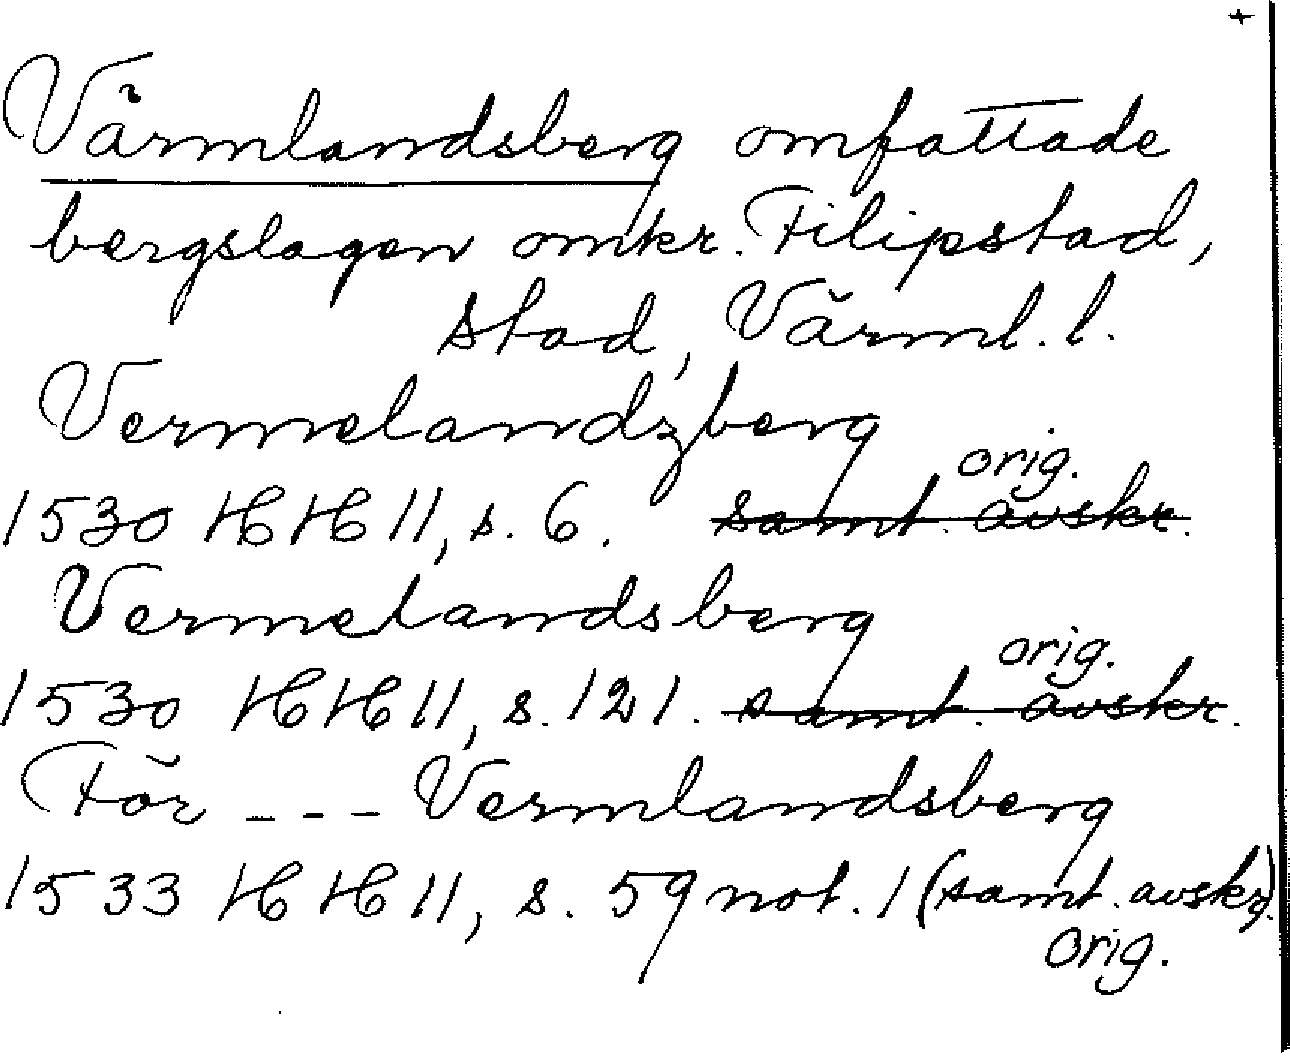 +
Värmlandsberg omfattade
bergslagen omkr. Filipstad,
stad, Värml. l.
Vermelandzberg
orig.
1530 HH 11, s. 6. samt. avskr.
Vermelandsberg
orig.
1530 HH 11, s. 121. samt. avskr.
För --- Vermlandsberg
1533 HH 11, s. 59 not. 1 (samt. avskr.)
Orig.